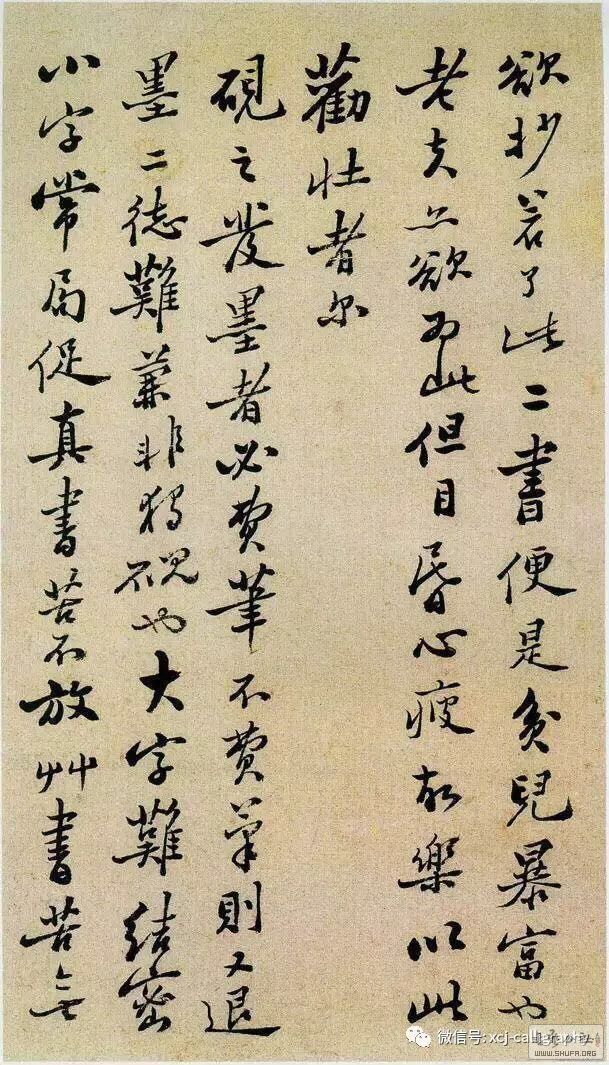 欲抄若了此二書便是貧兒暴富也
老夫亦欲為此但目昏心疲故樂以此
勸壯者尔
硯之發墨者必費筆不費筆則又退
墨二德難兼非獨硯也大字難結密
小字常局促真書苦不放艸書苦無
微信号: xcj-calligraphy
WWW.SHUFA.ORG